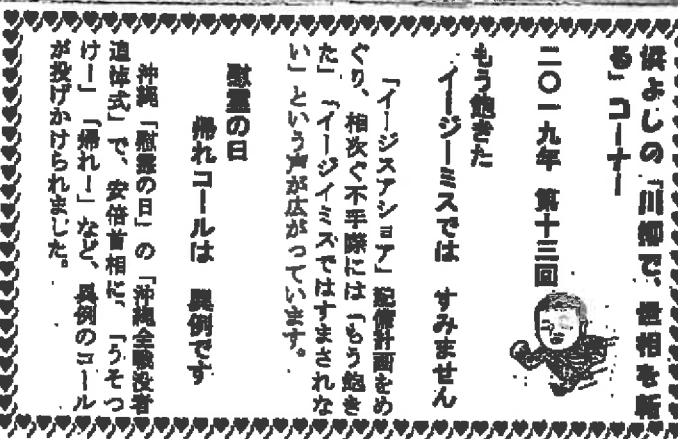 槙よしの「川柳で、世相を斬
る」コーナー
二〇一九年　第十三回
もう飽きた
イージーミスでは　すみません
「イージスアショア」配備計画をめ
ぐり、相次ぐ不手際には「もう飽き
た」「イージイミスではすまされな
い」という声が広がっています。
慰霊の日
帰れコールは　異例です
沖縄「慰霊の日」の「沖縄全戦没者
追悼式」で、安倍首相に、「うそつ
け！」「帰れ！」など、異例のコール
が投げかけられました。